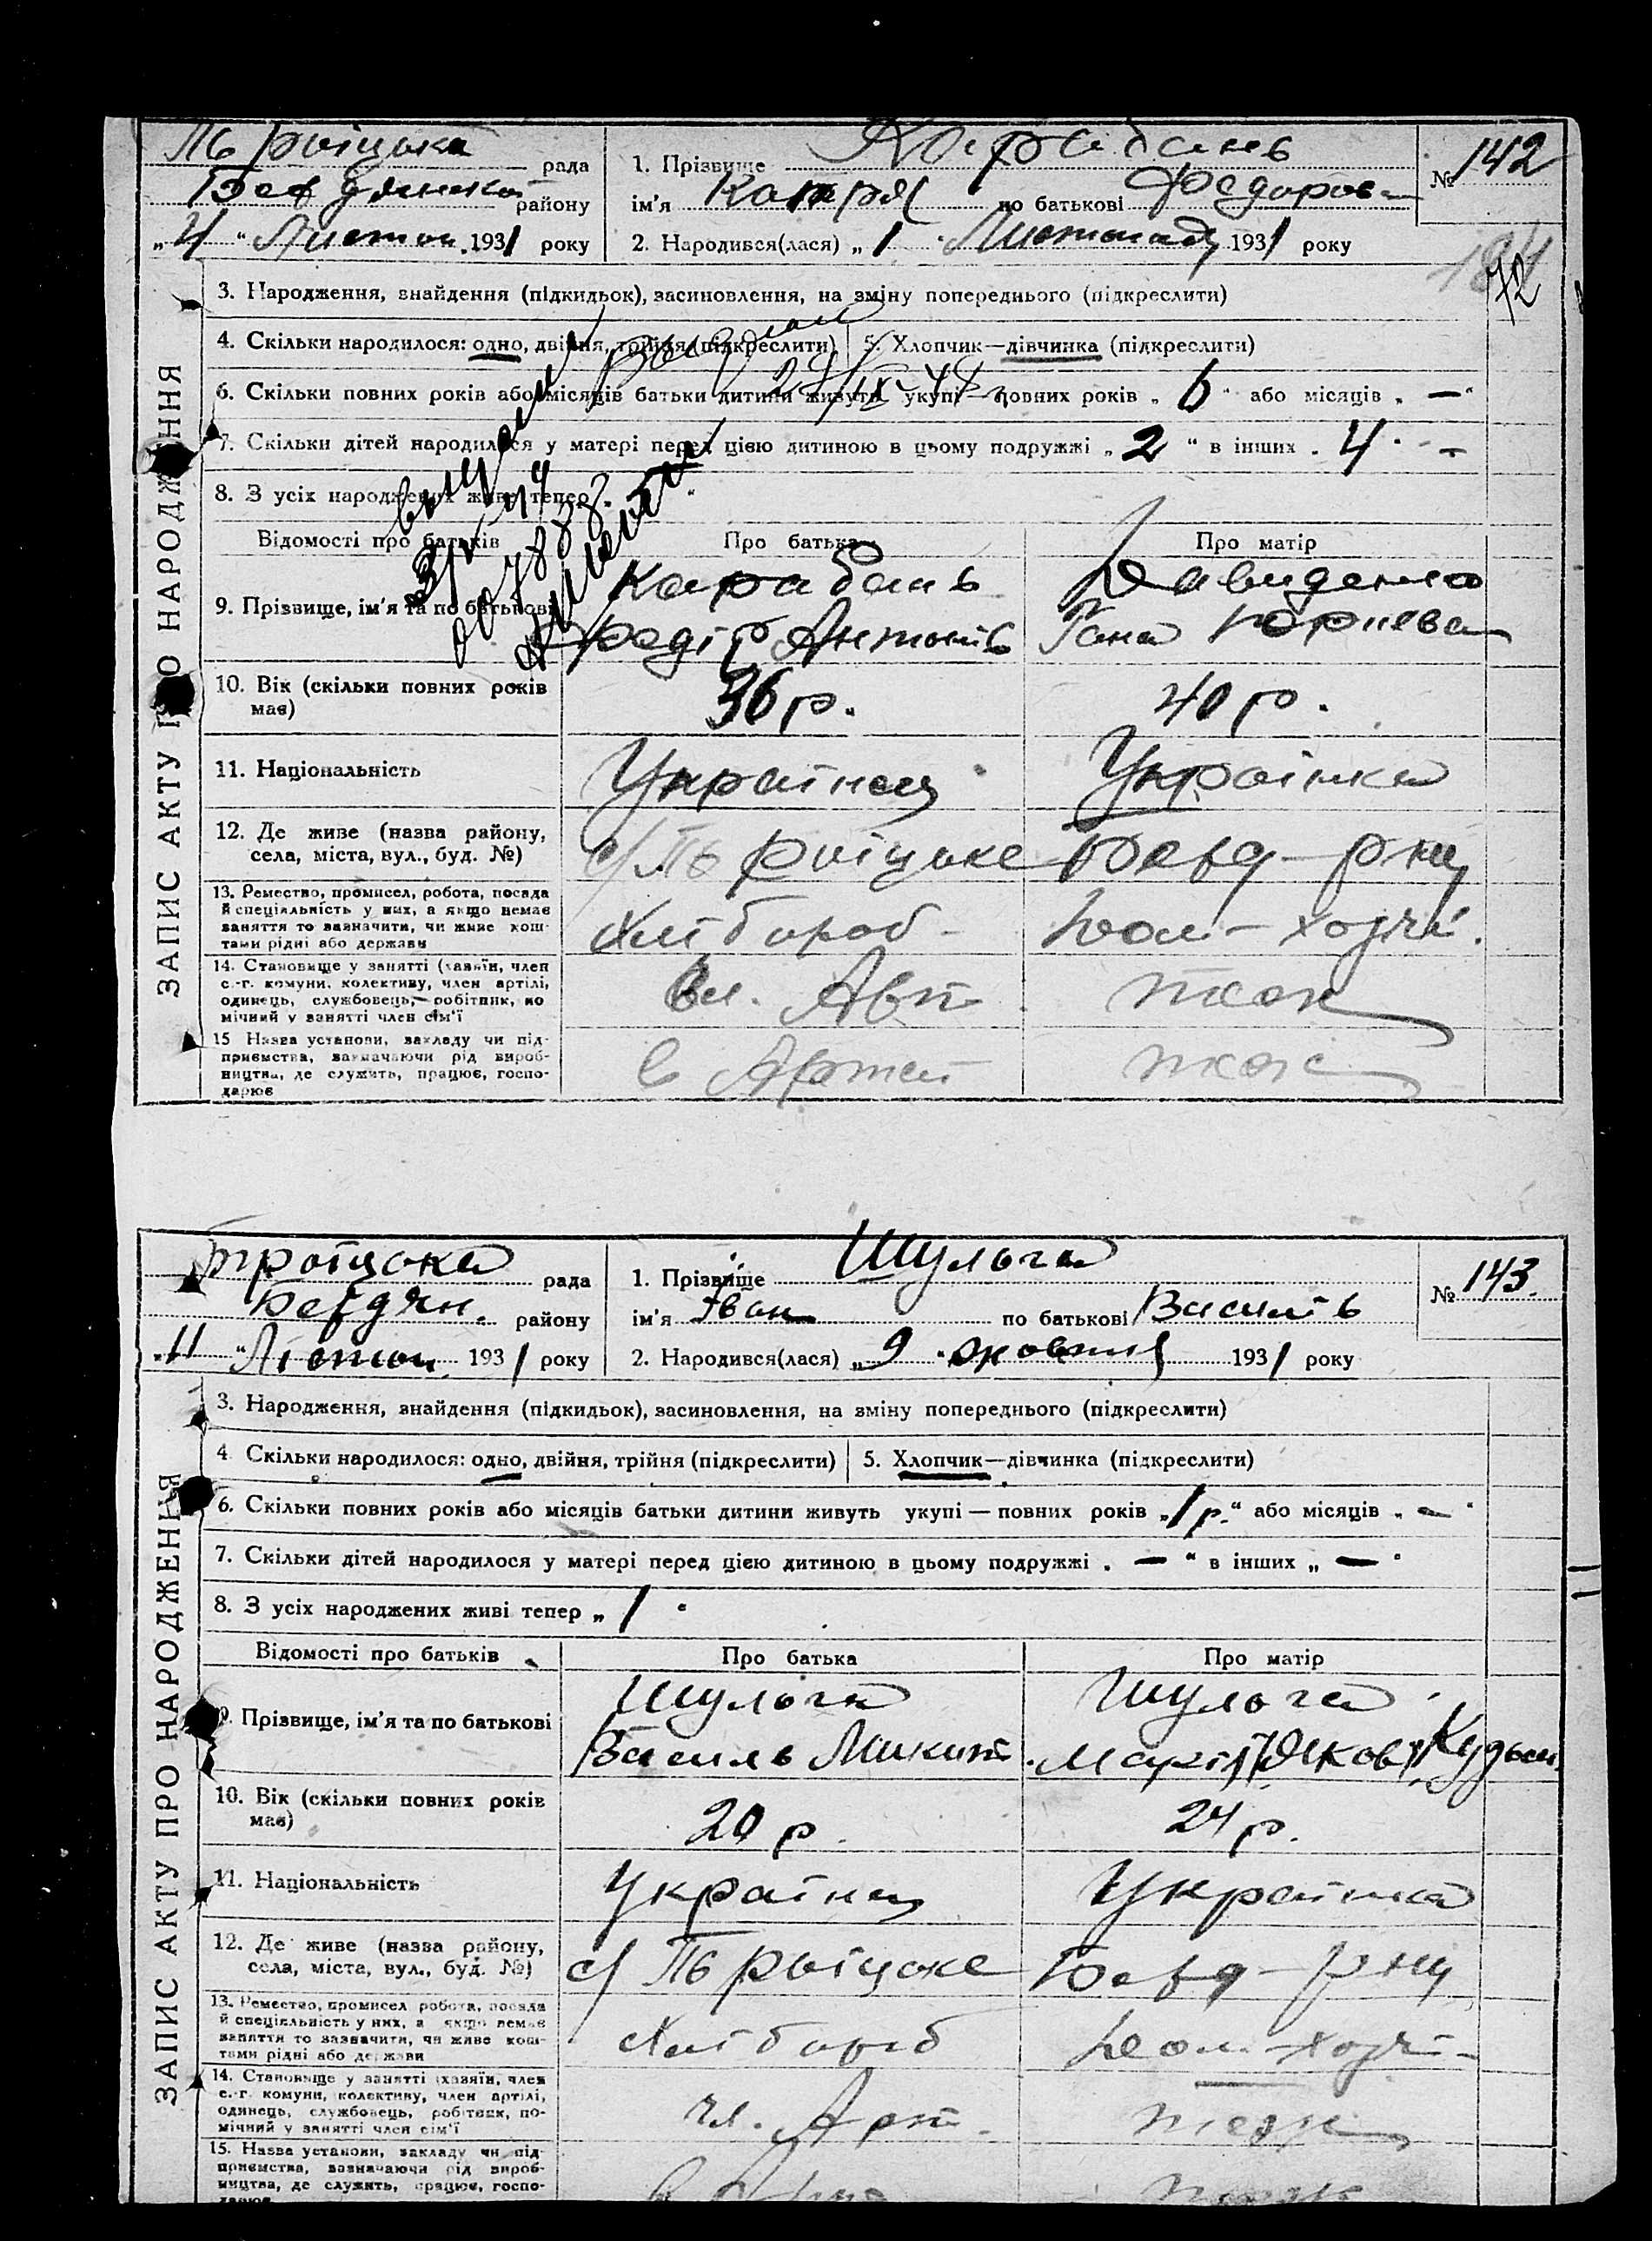 Троіцька рада
Бердянськ району
„4“ Листоп. 1931 року
1. Прізвище Карабань
ім'я Катря по батькові Федоров
2. Народився(лася) „1“ Листопаду 1931 року
№ 142
72
3. Народження, знайдення (підкидьок), засиновлення, на зміну попереднього (підкреслити)
4. Скільки народилося: одно, двійня, трійня (підкреслити) 5. Хлопчик—дівчинка (підкреслити)
6. Скільки повних років або місяців батьки дитини живуть укупі — повних років „6“ або місяців „—“
7. Скільки дітей народилося у матері перед цією дитиною в цьому подружжі „2“ в інших „4“ —
8. З усіх народжених живі тепер „ “
Відомості про батьків Про батька Про матір
9. Прізвище, ім'я та по батькові
Карабань Давиденко
Федір Антонів Гана Корнева
10. Вік (скільки повних років має) 36 р. 40 р.
11. Національність Українец Українка
12. Де живе (назва району, села, міста, вул., буд. №) с/ Троіцьке Берд-рну
13. Ремество, промисел, робота, посада й спеціяльність у них, а якщо немає заняття то зазначити, чи живе коштами рідні або держави
Хлібороб- Дом-хозяй.
14. Становище у занятті (хазяїн, член с.-г. комуни, колективу, член артілі, одинець, службовець, робітник, помічний у занятті член сім'ї
Чл. Арт тож
15 Назва установи, закладу чи підприємства, зазначаючи рід виробництва, де служить, працює, господарює
в Артіл тож
ЗАПИС АКТУ ПРО НАРОДЖЕННЯ
Троїцька рада
Бердян. району
„11“ Лістоп. 1931 року
1. Прізвище Шульга
ім'я Іван по батькові Василів
2. Народився(лася) „9“ жовтня 1931 року
№ 143.
3. Народження, знайдення (підкидьок), засиновлення, на зміну попереднього (підкреслити)
4. Скільки народилося: одно, двійня, трійня (підкреслити) 5. Хлопчик—дівчинка (підкреслити)
6. Скільки повних років або місяців батьки дитини живуть укупі — повних років „1 р.“ або місяців „—“
7. Скільки дітей народилося у матері перед цією дитиною в цьому подружжі „—“ в інших „—“
8. З усіх народжених живі тепер „1“
Відомості про батьків Про батька Про матір
9. Прізвище, ім'я та по батькові
Шульга Шульга
Василь Микит.
10. Вік (скільки повних років має) 20 р. 24 р.
11. Національність Українец Українка
12. Де живе (назва району, села, міста, вул., буд. №) с/ Троіцьке Берд-рну
13. Ремество, промисел робота, посада й спеціяльність у них, а якщо немає заняття то зазначити, чи живе коштами рідні або держави
Хлібороб Дом.-хозяй-
14. Становище у занятті (хазяїн, член с.-г. комуни, колективу, член артілі, одинець, службовець, робітник, помічний у занятті член сім'ї
чл. Арт. тож
15. Назва установи, закладу чи підприємства, зазначаючи рід виробництва, де служить, працює, господарює
тож
ЗАПИС АКТУ ПРО НАРОДЖЕННЯ